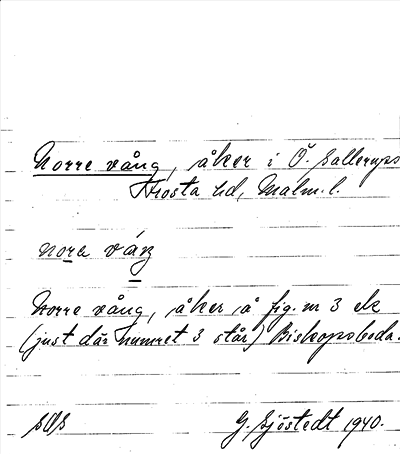 Norre vång, åker i Ö. Sallerups
Frosta hd, Malm. l.
nora våŋ
Norre vång, åker å fig. nr 3 ek
(just där numret 3 står) Biskopsboda.
SOS
G. Sjöstedt 1940.